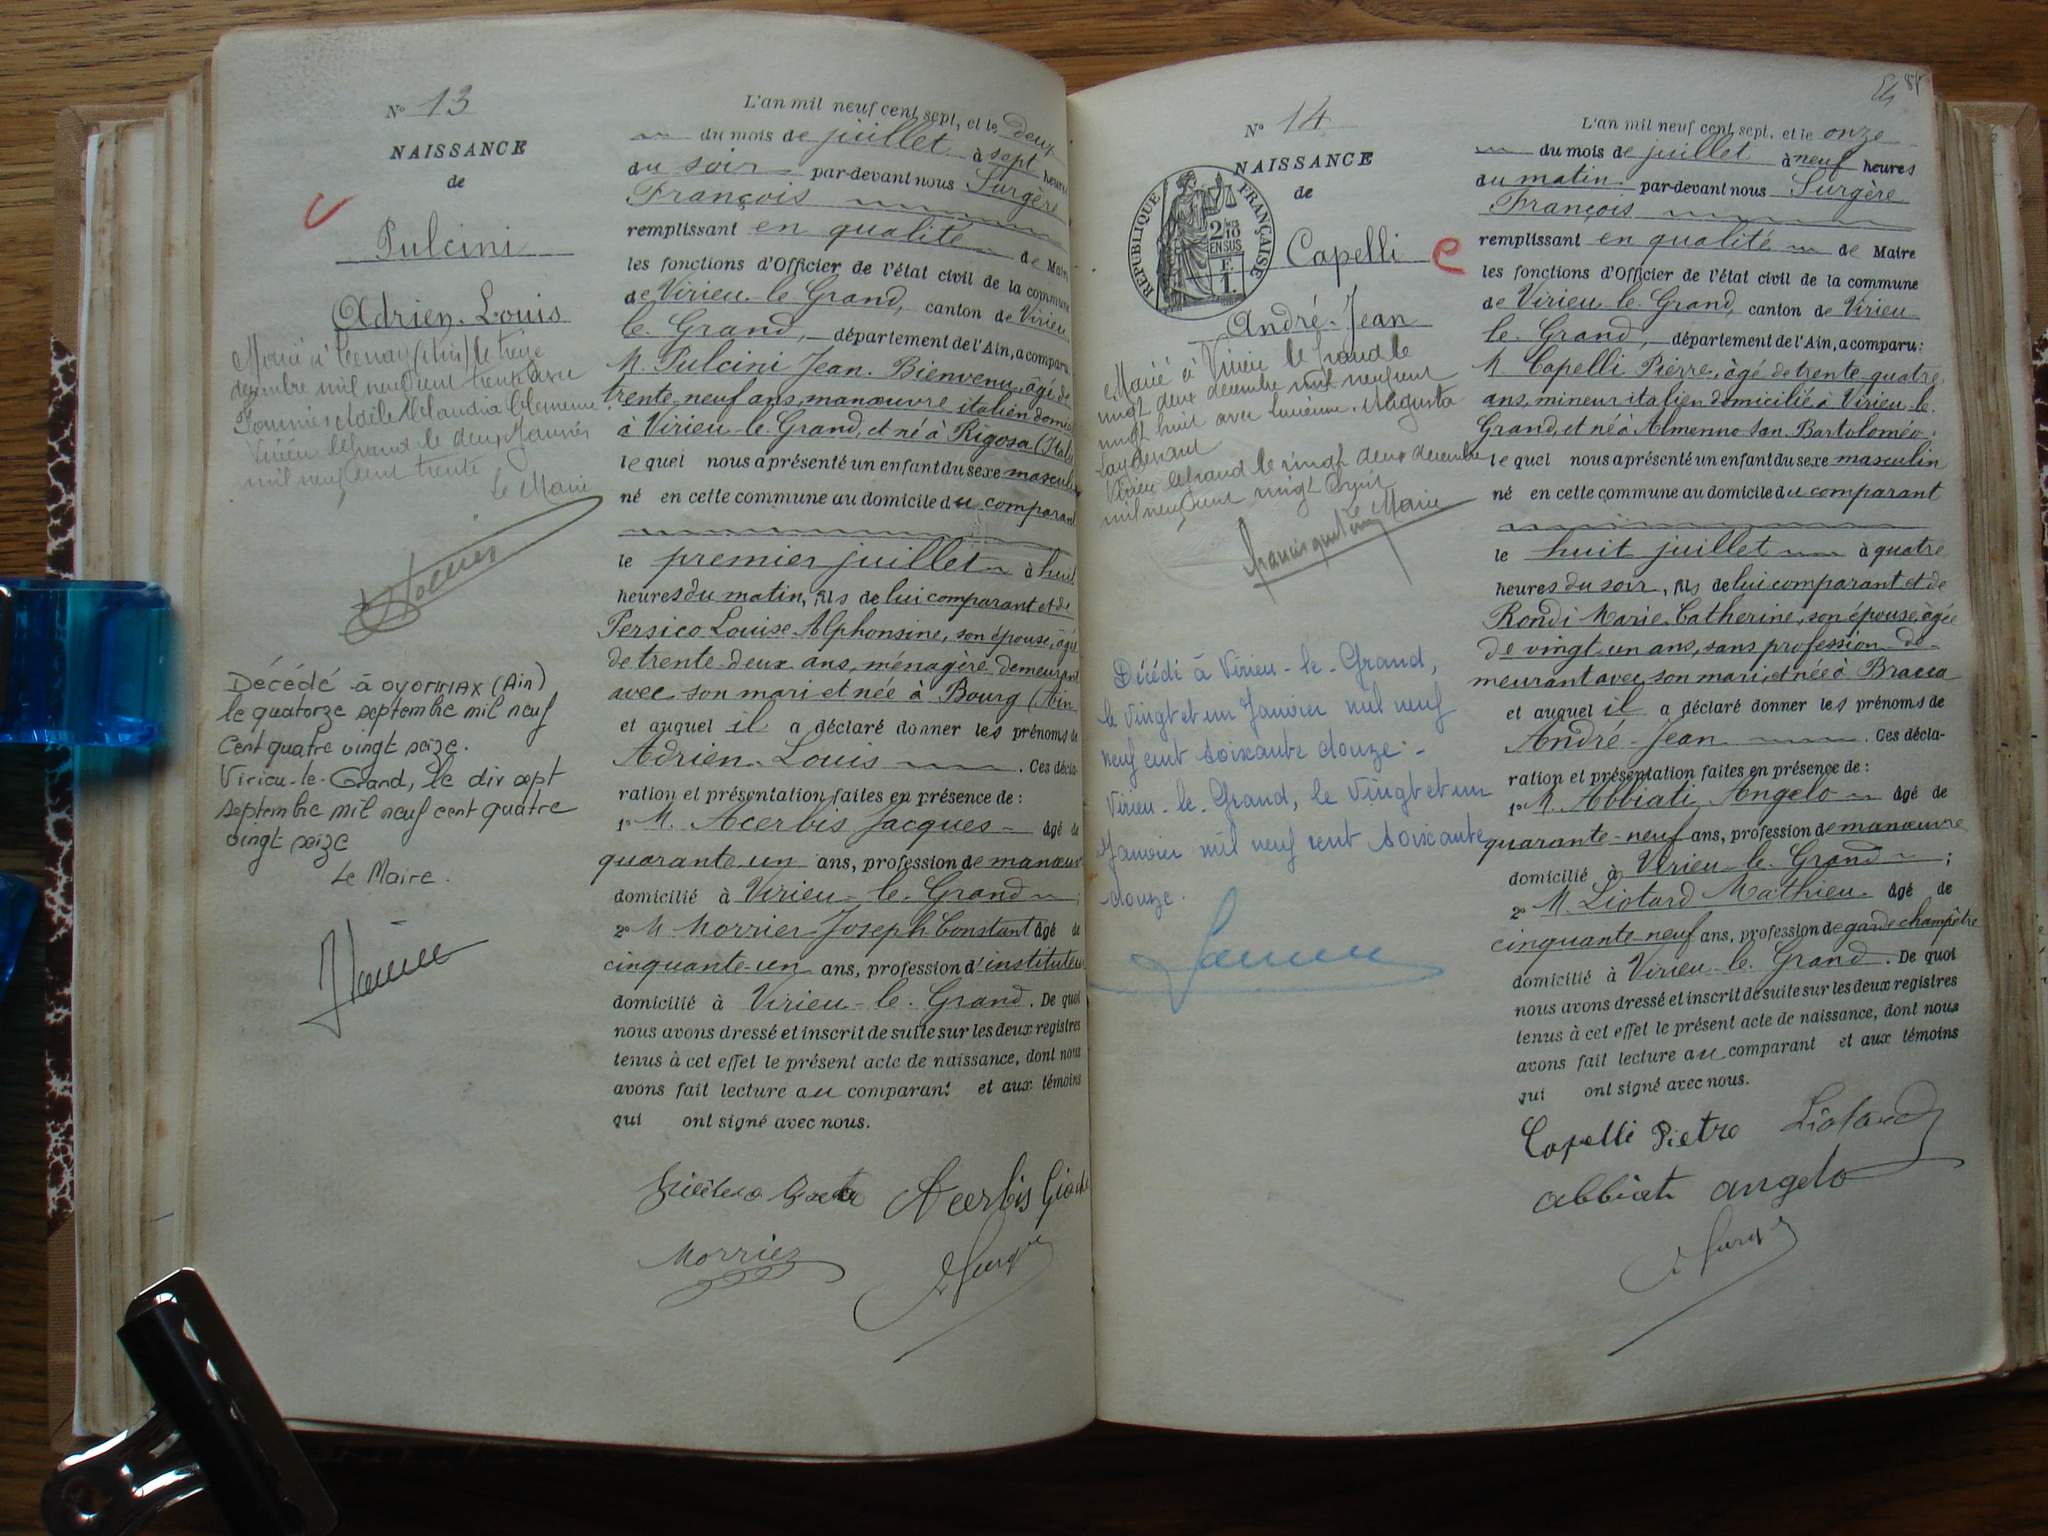 N° 13
NAISSANCE
de
Pulcini
Adrien-Louis
décembre mil neuf cent trente avec
mil neuf cent trente
Le Maire
Décédé à OYONNAX (Ain)
le quatorze septembre mil neuf
cent quatre vingt seize.
Virieu-le-Grand, le dix sept
septembre mil neuf cent quatre
vingt seize
Le Maire.
L'an mil neuf cent sept, et le deux
du mois de juillet à sept heures
du soir par-devant nous Surgère
François
remplissant en qualité de Maire
les fonctions d'Officier de l'état civil de la commune
de Virieu-le-Grand, canton de Virieu
le-Grand, département de l'Ain, a comparu:
M. Pulcini Jean-Bienvenu, âgé de
trente-neuf ans, manœuvre italien domicilié
à Virieu-le-Grand, et né à Rigosa (Italie
lequel nous a présenté un enfant du sexe masculin
né en cette commune au domicile du comparant
le premier juillet à huit
heures du matin, fils de lui comparant et de
Persico Louise Alphonsine, son épouse, âgée
de trente-deux ans, ménagère demeurant
avec son mari et née à Bourg (Ain
et auquel il a déclaré donner les prénoms de
Adrien-Louis . Ces décla-
ration et présentation faites en présence de :
1° M. Acerbis Jacques âgé de
quarante-un ans, profession de manœuvre
domicilié à Virieu-le-Grand ;
2° M Morrier Joseph-Constant âgé de
cinquante-un ans, profession d'instituteur
domicilié à Virieu-le-Grand. De quoi
nous avons dressé et inscrit de suite sur les deux registres
tenus à cet effet le présent acte de naissance, dont nous
avons fait lecture au comparant et aux témoins
qui ont signé avec nous.
Acerbis
Morrier
Surgère
N° 14
NAISSANCE
de
REPUBLIQUE FRANÇAISE
2/10
EN SUS
F.
1.
Capelli
André-Jean
Marié à Virieu le Grand le
vingt deux décembre mil neuf cent
vingt huit avec Lucienne Augusta
Virieu le Grand le vingt deux décembre
mil neuf cent vingt huit
Le Maire
Décédé à Virieu-le-Grand,
le vingt et un Janvier mil neuf
neuf cent soixante douze -
Virieu-le-Grand, le vingt et un
Janvier mil neuf cent soixante
douze.
L'an mil neuf cent sept, et le onze
du mois de juillet à neuf heures
du matin par-devant nous Surgère
François
remplissant en qualité de Maire
les fonctions d'Officier de l'état civil de la commune
de Virieu-le-Grand, canton de Virieu
le-Grand, département de l'Ain, a comparu:
M. Capelli Pierre, âgé de trente-quatre
ans, mineur italien domicilié à Virieu-le-
Grand, et né à Almenno San Bartoloméo;
lequel nous a présenté un enfant du sexe masculin
né en cette commune au domicile du comparant
le huit juillet à quatre
heures du soir, fils de lui comparant et de
Rondi Marie-Catherine, son épouse, âgée
de vingt-un ans, sans profession de-
meurant avec son mari, et née à Bracca
et auquel il a déclaré donner les prénoms de
André-Jean . Ces décla-
ration et présentation faites en présence de :
1° M. Abbiati Angelo âgé de
quarante-neuf ans, profession de manœuvre
domicilié à Virieu-le-Grand ;
2° M. Liotard Mathieu âgé de
cinquante-neuf ans, profession de garde champêtre
domicilié à Virieu-le-Grand. De quoi
nous avons dressé et inscrit de suite sur les deux registres
tenus à cet effet le présent acte de naissance, dont nous
avons fait lecture au comparant et aux témoins
qui ont signé avec nous.
Capelli Pietro Liotard
abbiati angelo